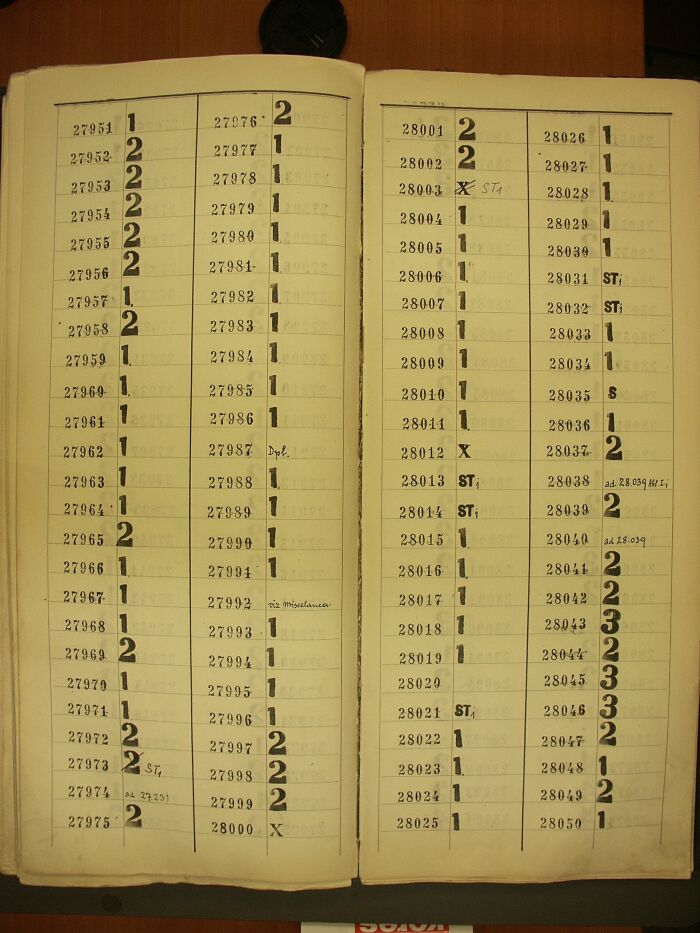 27951 1
27952 2
27953 2
27954 2
27955 2
27956 2
27957 1.
27958 2
27959 1.
27960 1.
27961 1
27962 1
27963 1
27964 1
27965 2
27966 1
27967 1
27968 1
27969 2
27970 1
27971 1
27972 2
27973 2 ST1
27974 ad 27.231
27975 2
27976 2
27977 1
27978 1
27979 1
27980 1
27981 1.
27982 1
27983 1
27984 1
27985 1
27986 1
27987 Dpl.
27988 1
27989 1
27990 1
27991 1
27992 viz Miscelanea
27993 1
27994 1
27995 1
27996 1
27997 2
27998 2
27999 2
28000 X
28001 2
28002 2
28003 X ST1
28004 1
28005 1
28006 1.
28007 1
28008 1
28009 1
28010 1
28011 1.
28012 X
28013 ST1
28014 ST1
28015 1.
28016 1.
28017 1
28018 1
28019 1
28020
28021 ST1
28022 1
28023 1.
28024 1
28025 1
28026 1
28027 1
28028 1.
28029 1
28030 1
28031 ST1
28032 ST1
28033 1
28034 1
28035 S
28036 1
28037 2
28038 ad 28.039
28039 2
28040 ad 28.039
28041 2
28042 2
28043 3
28044 2
28045 3
28046 3
28047 2
28048 1
28049 2
28050 1.